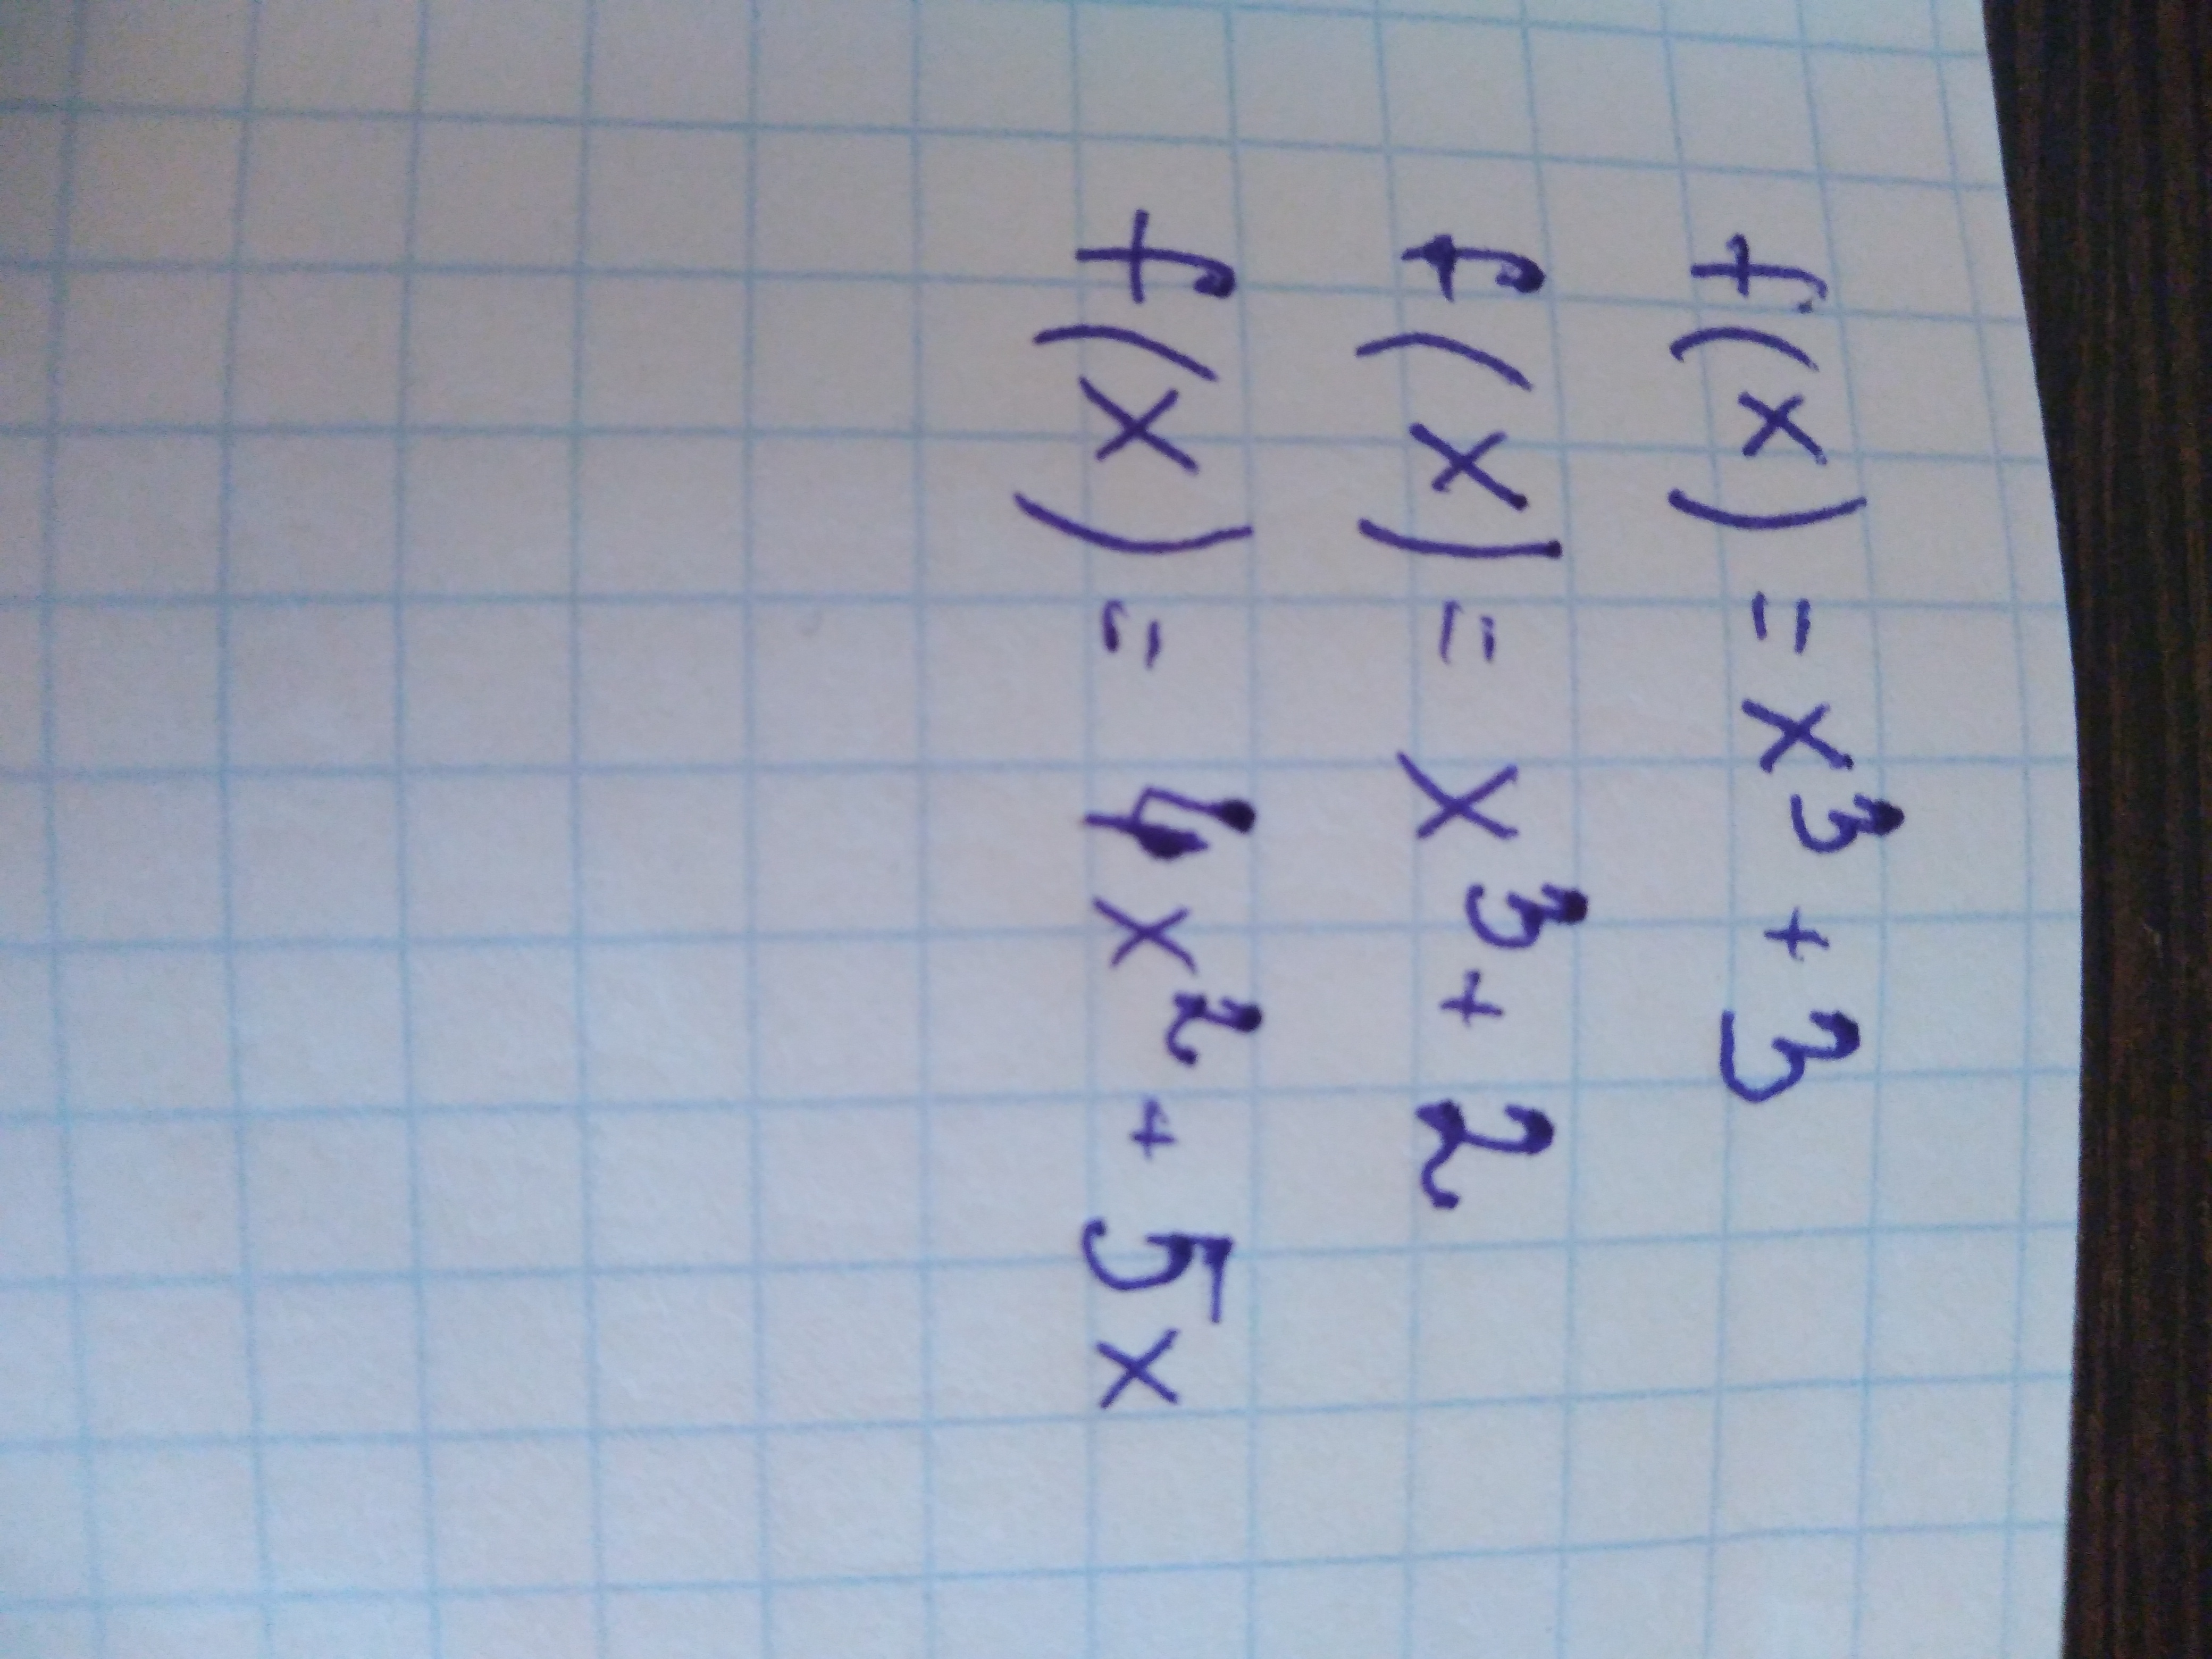 f(x) = x³ + 3
f(x) = x³ + 2
f(x) = 4x² + 5x